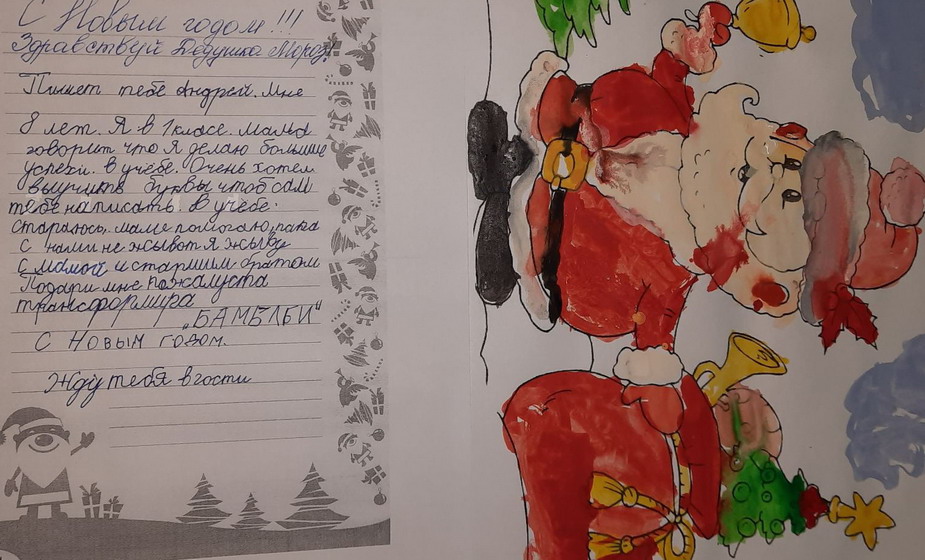 С Новым годом!!!
Здравствуй Дедушка Мороз!
Пишет тебе Андрей. Мне
8 лет. Я в 1 класе. мама
говорит что я делаю большие
успехи. в учёбе. Очень хотел
выучить буквы чтоб сам
тебе написать. В учебе.
стараюсь, маме помогаю, папа
с нами не жывот я жыву
с мамой и старшим братом
Подари мне пожалуста
трансформира
„БАМБЛБИ"
С Новым годом.
Жду тебя в гости